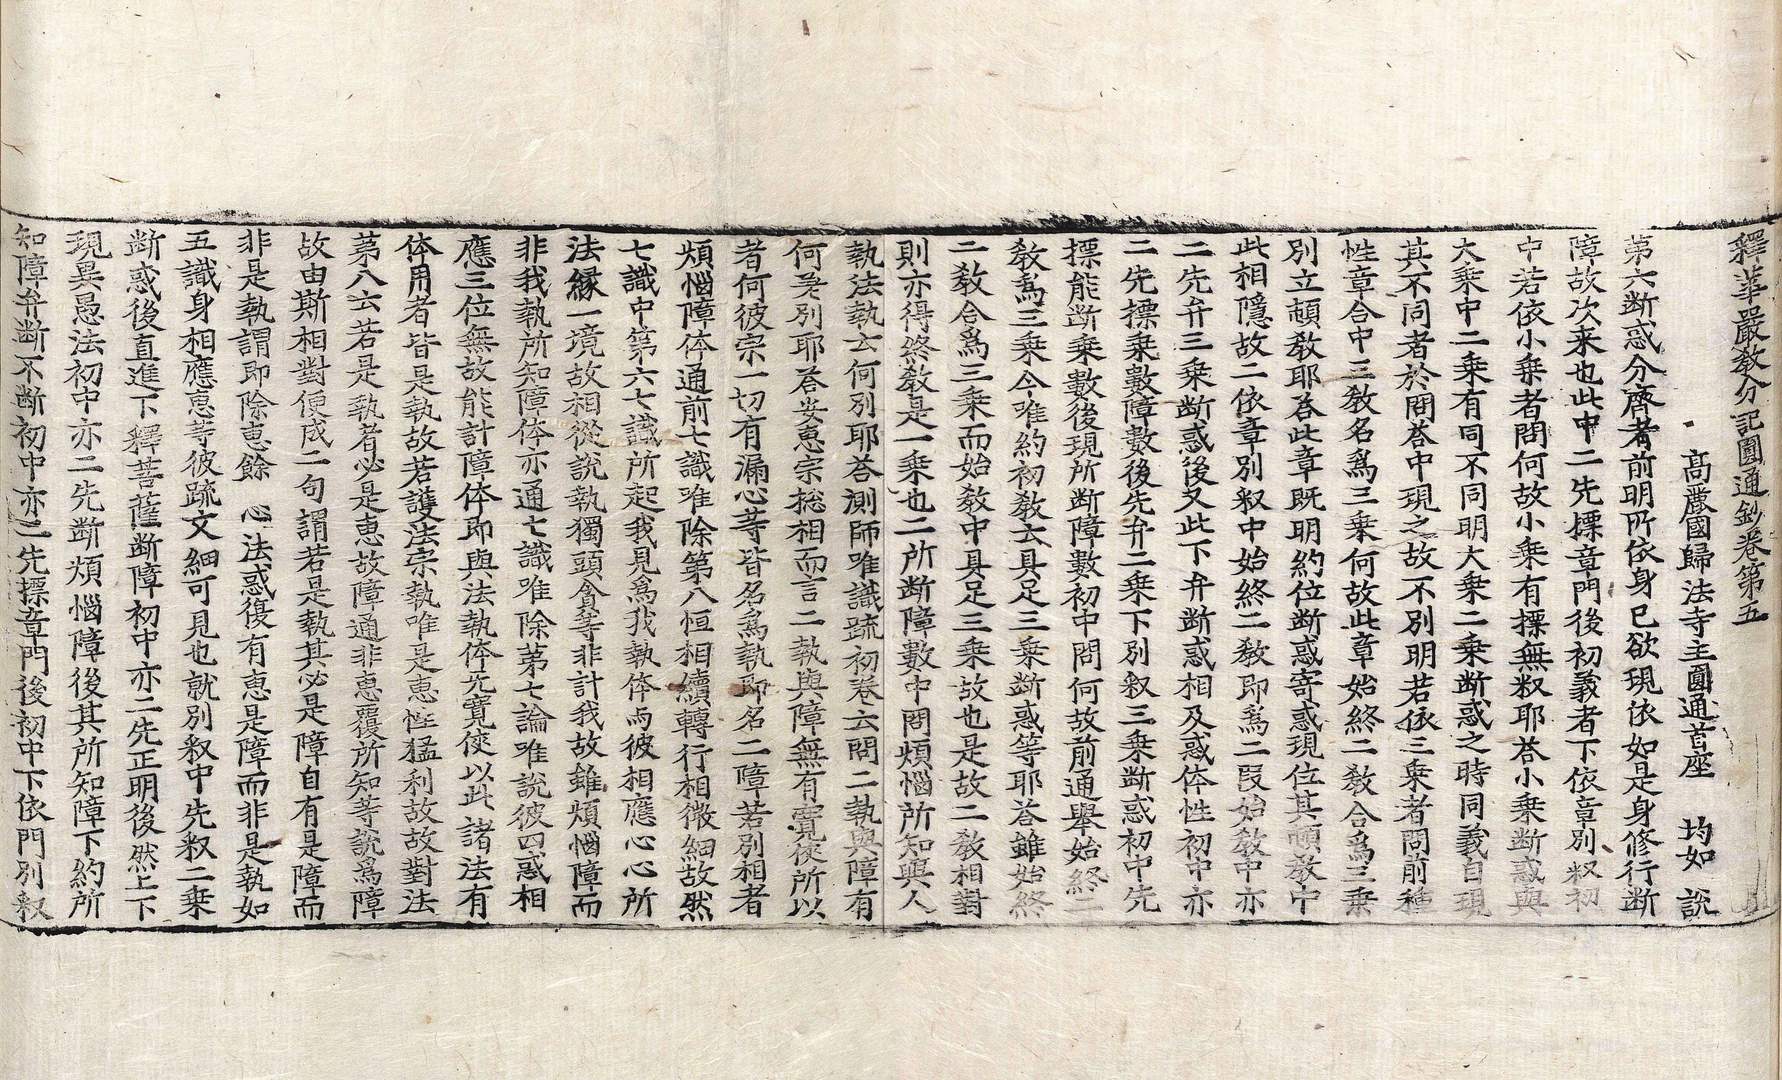 釋華嚴教分記圓通鈔卷第五
高麗國歸法寺主圓通首座 均如 說
第六断惑分齊者前明所依身已欲現依如是身修行断
障故次来也此中二先摽章門後初義者下依章別叙初
中若依小乗者問何故小乗有摽無叙耶荅小乗断惑與
大乗中二乗有同不同明大乗二乗断惑之時同義自現
其不同者於問荅中現之故不別明若依三乗者問前種
性章合中三教名為三乗何故此章始終二教合為三乗
別立頓教耶荅此章既明約位断惑寄惑現位其頓教中
此相隱故二依章別叙中始終二教即為二段始教中亦
二先弁三乗断惑後又此下弁断惑相及惑体性初中亦
二先摽乗數障數後先弁二乗下別叙三乗断惑初中先
摽能断乗數後現所断障數初中問何故前通舉始終二
教為三乗今唯約初教云具足三乗断惑等耶荅雖始終
二教合為三乗而始教中具足三乗故也是故二教相對
則亦得終教是一乗也二所断障數中問煩惱所知與人
執法執云何別耶荅測師唯識䟽初卷云問二執與障有
何差別耶荅安惠宗捴相而言二執與障無有寬使所以
者何彼宗一切有漏心等皆名為執即名二障若別相者
煩惱障体通前七識唯除第八恒相續轉行相微細故然
七識中第六七識所起我見為我執体而彼相應心心所
法縁一境故相從說執獨頭貪等非計我故雖煩惱障而
非我執所知障体亦通七識唯除第七論唯說彼四惑相
應三位無故能計障体即與法執体无寬使以此諸法有
体用者皆是執故若護法宗執唯是恵性猛利故故對法
第八云若是執者必是恵故障通非恵覆所知等說為障
故由斯相對便成二句謂若是執其必是障自有是障而
非是執謂即除恵餘 心法惑復有恵是障而非是執如
五識身相應恵等彼䟽文細可見也就別叙中先叙二乗
断惑後直進下釋菩薩断障初中亦二先正明後然上下
現異愚法初中亦二先断煩惱障後其所知障下約所
知障弁断不断初中亦二先摽章門後初中下依門別叙